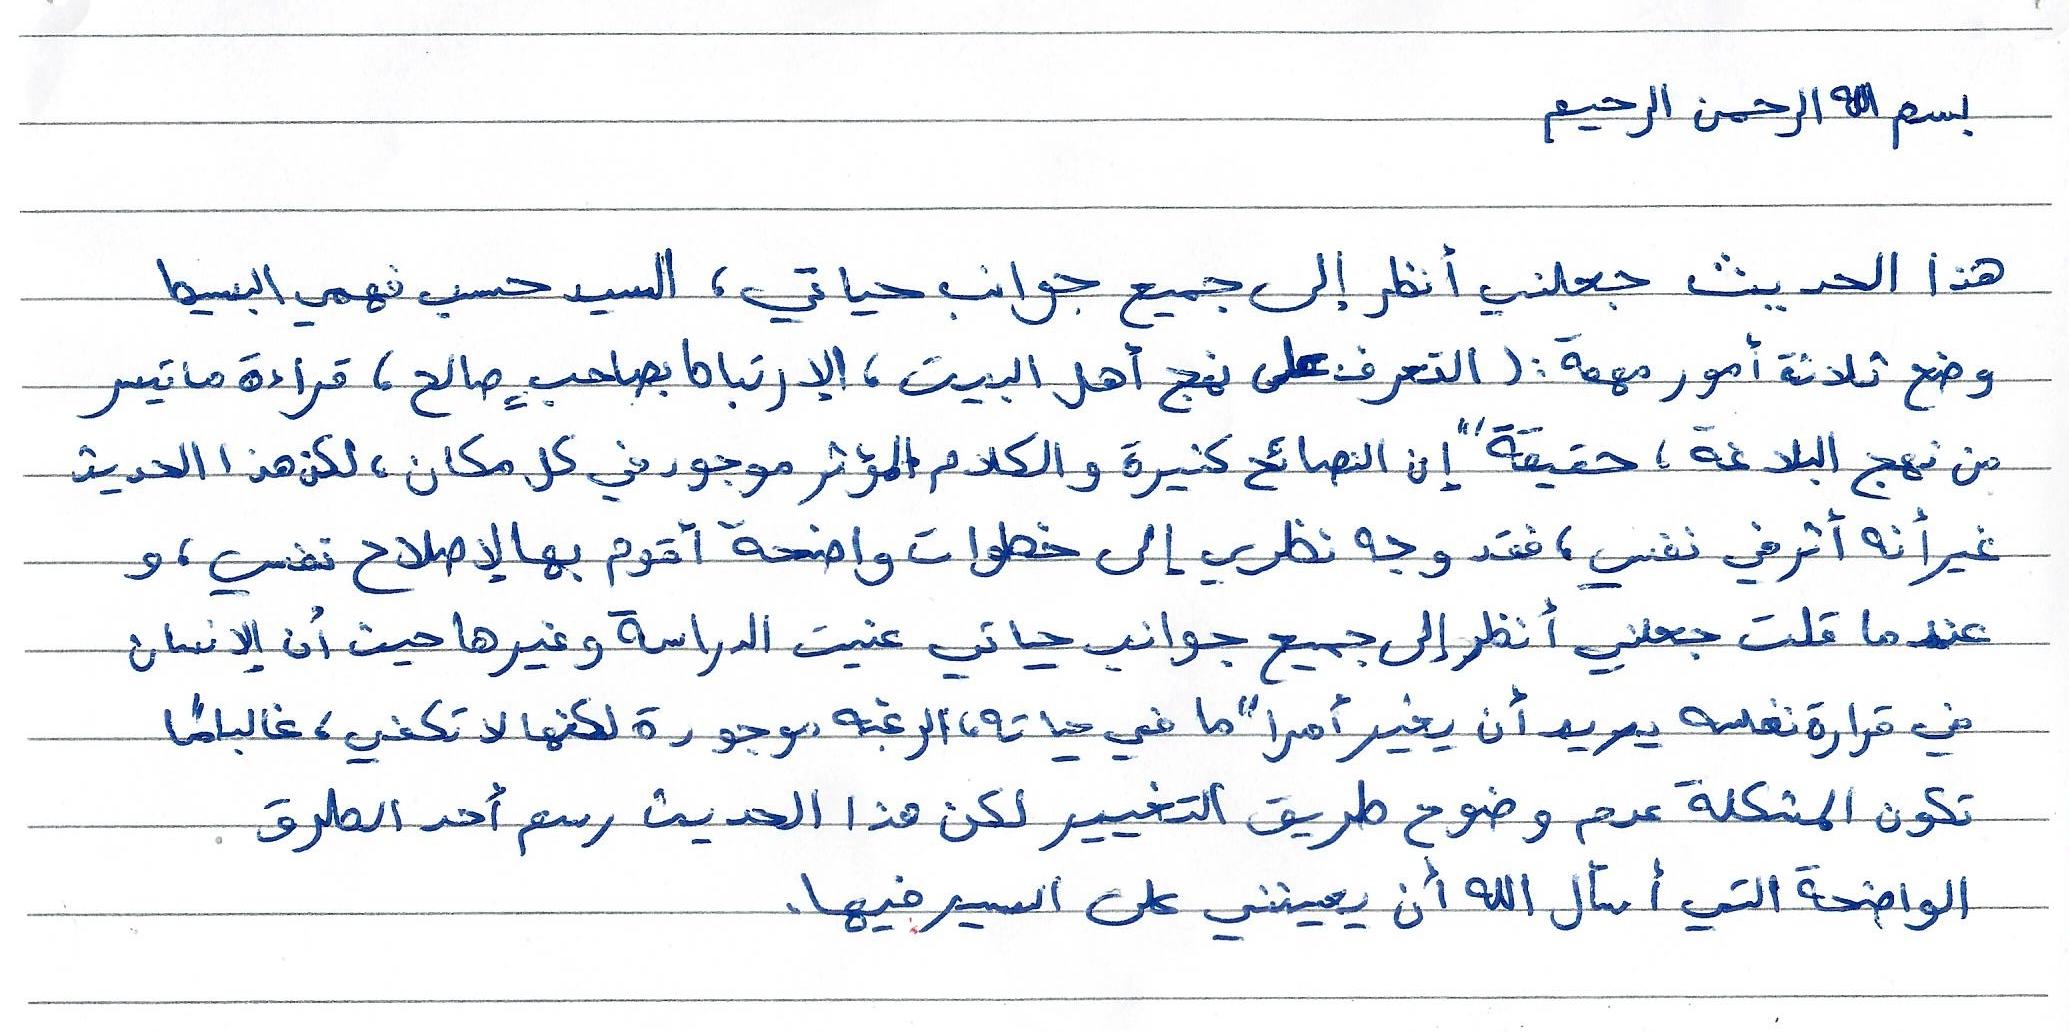 بسم الله الرحمن الرحيم
هذا الحديث جعلني أنظر إلى جميع جوانب حياتي، السيد حسب فهمي البسيط
وضع ثلاثة أمور مهمة: (التعرف على نهج أهل البيت، الإرتباط بصاحبٍ صالح، قراءة ما تيسر
من نهج البلاغة، حقيقةً إن النصائح كثيرة والكلام المؤثر موجود في كل مكان، لكن هذا الحديث
غير أنه أثر في نفسي، فقد وجه نظري إلى خطوات واضحة أقوم بها لإصلاح نفسي، و
عندما قلت جعلني أنظر إلى جميع جوانب حياتي عنيت الدراسة وغيرها حيث أن الإنسان
في قرارة نفسه يريد أن يغير أمراً ما في حياته، الرغبه موجودة لكنها لا تكفي، غالباً ما
تكون المشكلة عدم وضوح طريق التغيير لكن هذا الحديث رسم أحد الطرق
الواضحة التي أسأل الله أن يعينني على السير فيها.